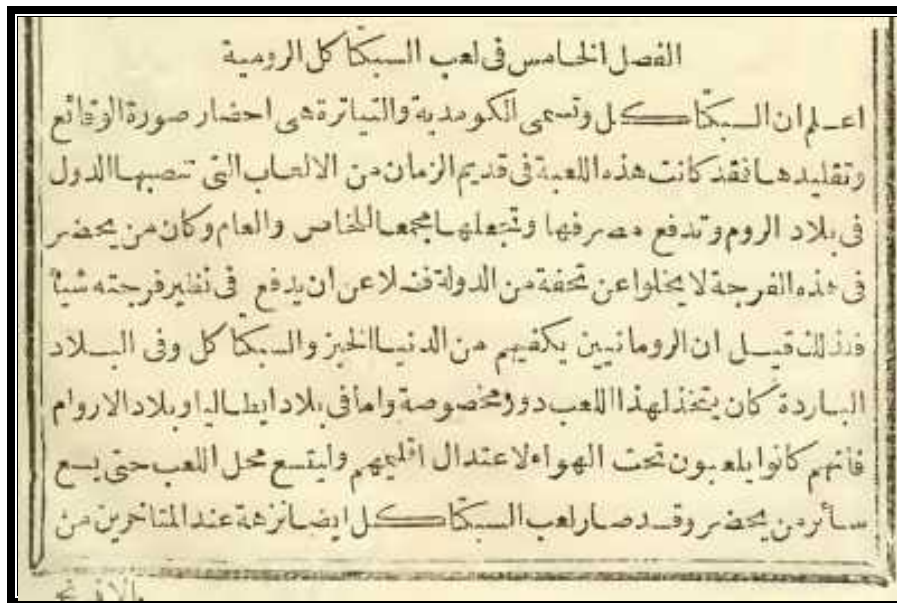 الفصل الخامس فى لعب السبكتا كل الرومية
اعلم ان السبكتاكل وتسمى الكومدية والتياترة هى احضار صورة الوقائع
وتقليدها فقد كانت هذه اللعبة فى قديم الزمان من الالعاب التى تنصبها الدول
فى بلاد الروم وتدفع مصرفها وتجعلها مجمعا للخاص والعام وكان من يحضر
فى هذه الفرجة لا يخلوا عن تحفة من الدولة فضلا عن ان يدفع فى نظير فرجته شيأ
فلذلك قيل ان الرومانيين يكفيهم من الدنيا الخبز والسبكتا كل وفى البلاد
الباردة كان يتخذ لهذا اللعب دور مخصوصة واما فى بلاد ايطاليا وبلاد الاروام
فانهم كانوا يلعبون تحت الهواء لاعتدال اقليمهم وليتسع محل اللعب حتى يسع
سائر من يحضر وقد صار لعب السبكتاكل ايضا نزهة عند المتاخرين من